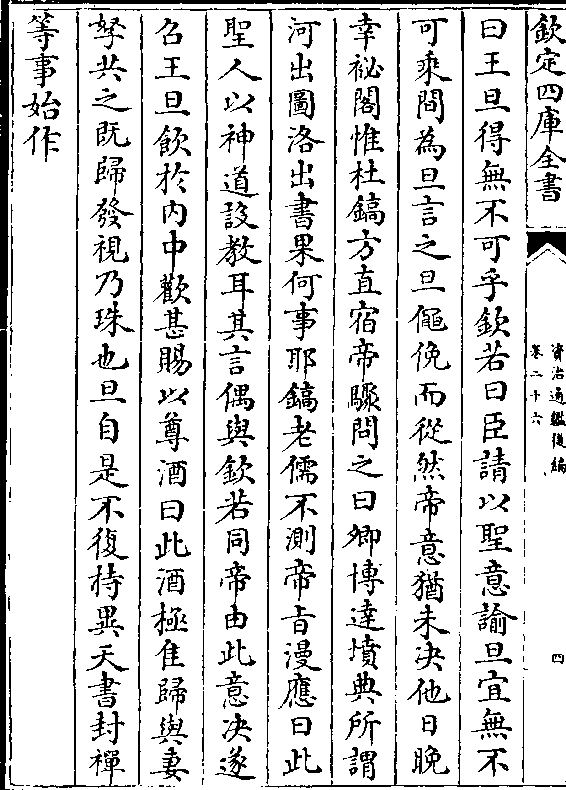 欽定四庫全書
資治通鑑後編
卷二十六
四
曰王旦得無不可乎欽若曰臣請以聖意諭旦宜無不
可乘間為旦言之旦僶俛而從然帝意猶未决他日晚
幸祕閣惟杜鎬方直宿帝驟問之曰卿博達墳典所謂
河出圖洛出書果何事耶鎬老儒不測帝旨漫應曰此
聖人以神道設教耳其言偶與欽若同帝由此意决遂
召王旦飲於内中歡甚賜以尊酒曰此酒極佳歸與妻
孥共之既歸發視乃珠也旦自是不復持異天書封禪
等事始作